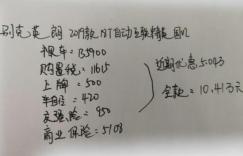 别克英朗 2019款 MT自动互联精英 国VI
裸车：135900
购置税：11615
上牌：500
车船：420
交强险：950
商业保险：5108
近期优惠5.043
全款=10.413元